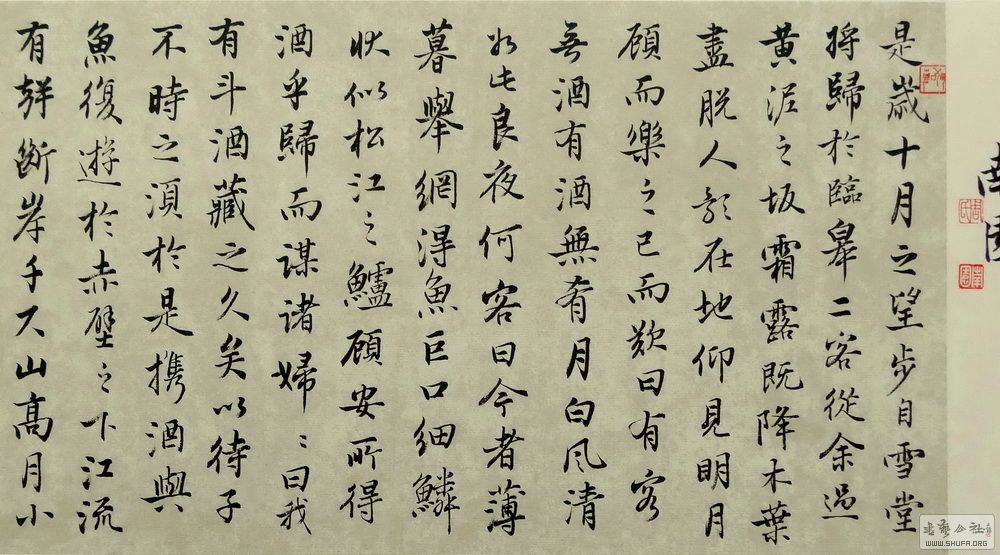 是歲十月之望步自雪堂
將歸於臨皋二客從余過
黃泥之坂霜露既降木葉
盡脫人影在地仰見明月
顧而樂之已而歎曰有客
無酒有酒無肴月白風清
如此良夜何客曰今者薄
暮舉網得魚巨口細鱗
狀似松江之鱸顧安所得
酒乎歸而謀諸婦〻曰我
有斗酒藏之久矣以待子
不時之須於是攜酒與
魚復遊於赤壁之下江流
有聲斷岸千尺山高月小
書藝公社
WWW.SHUFA.ORG